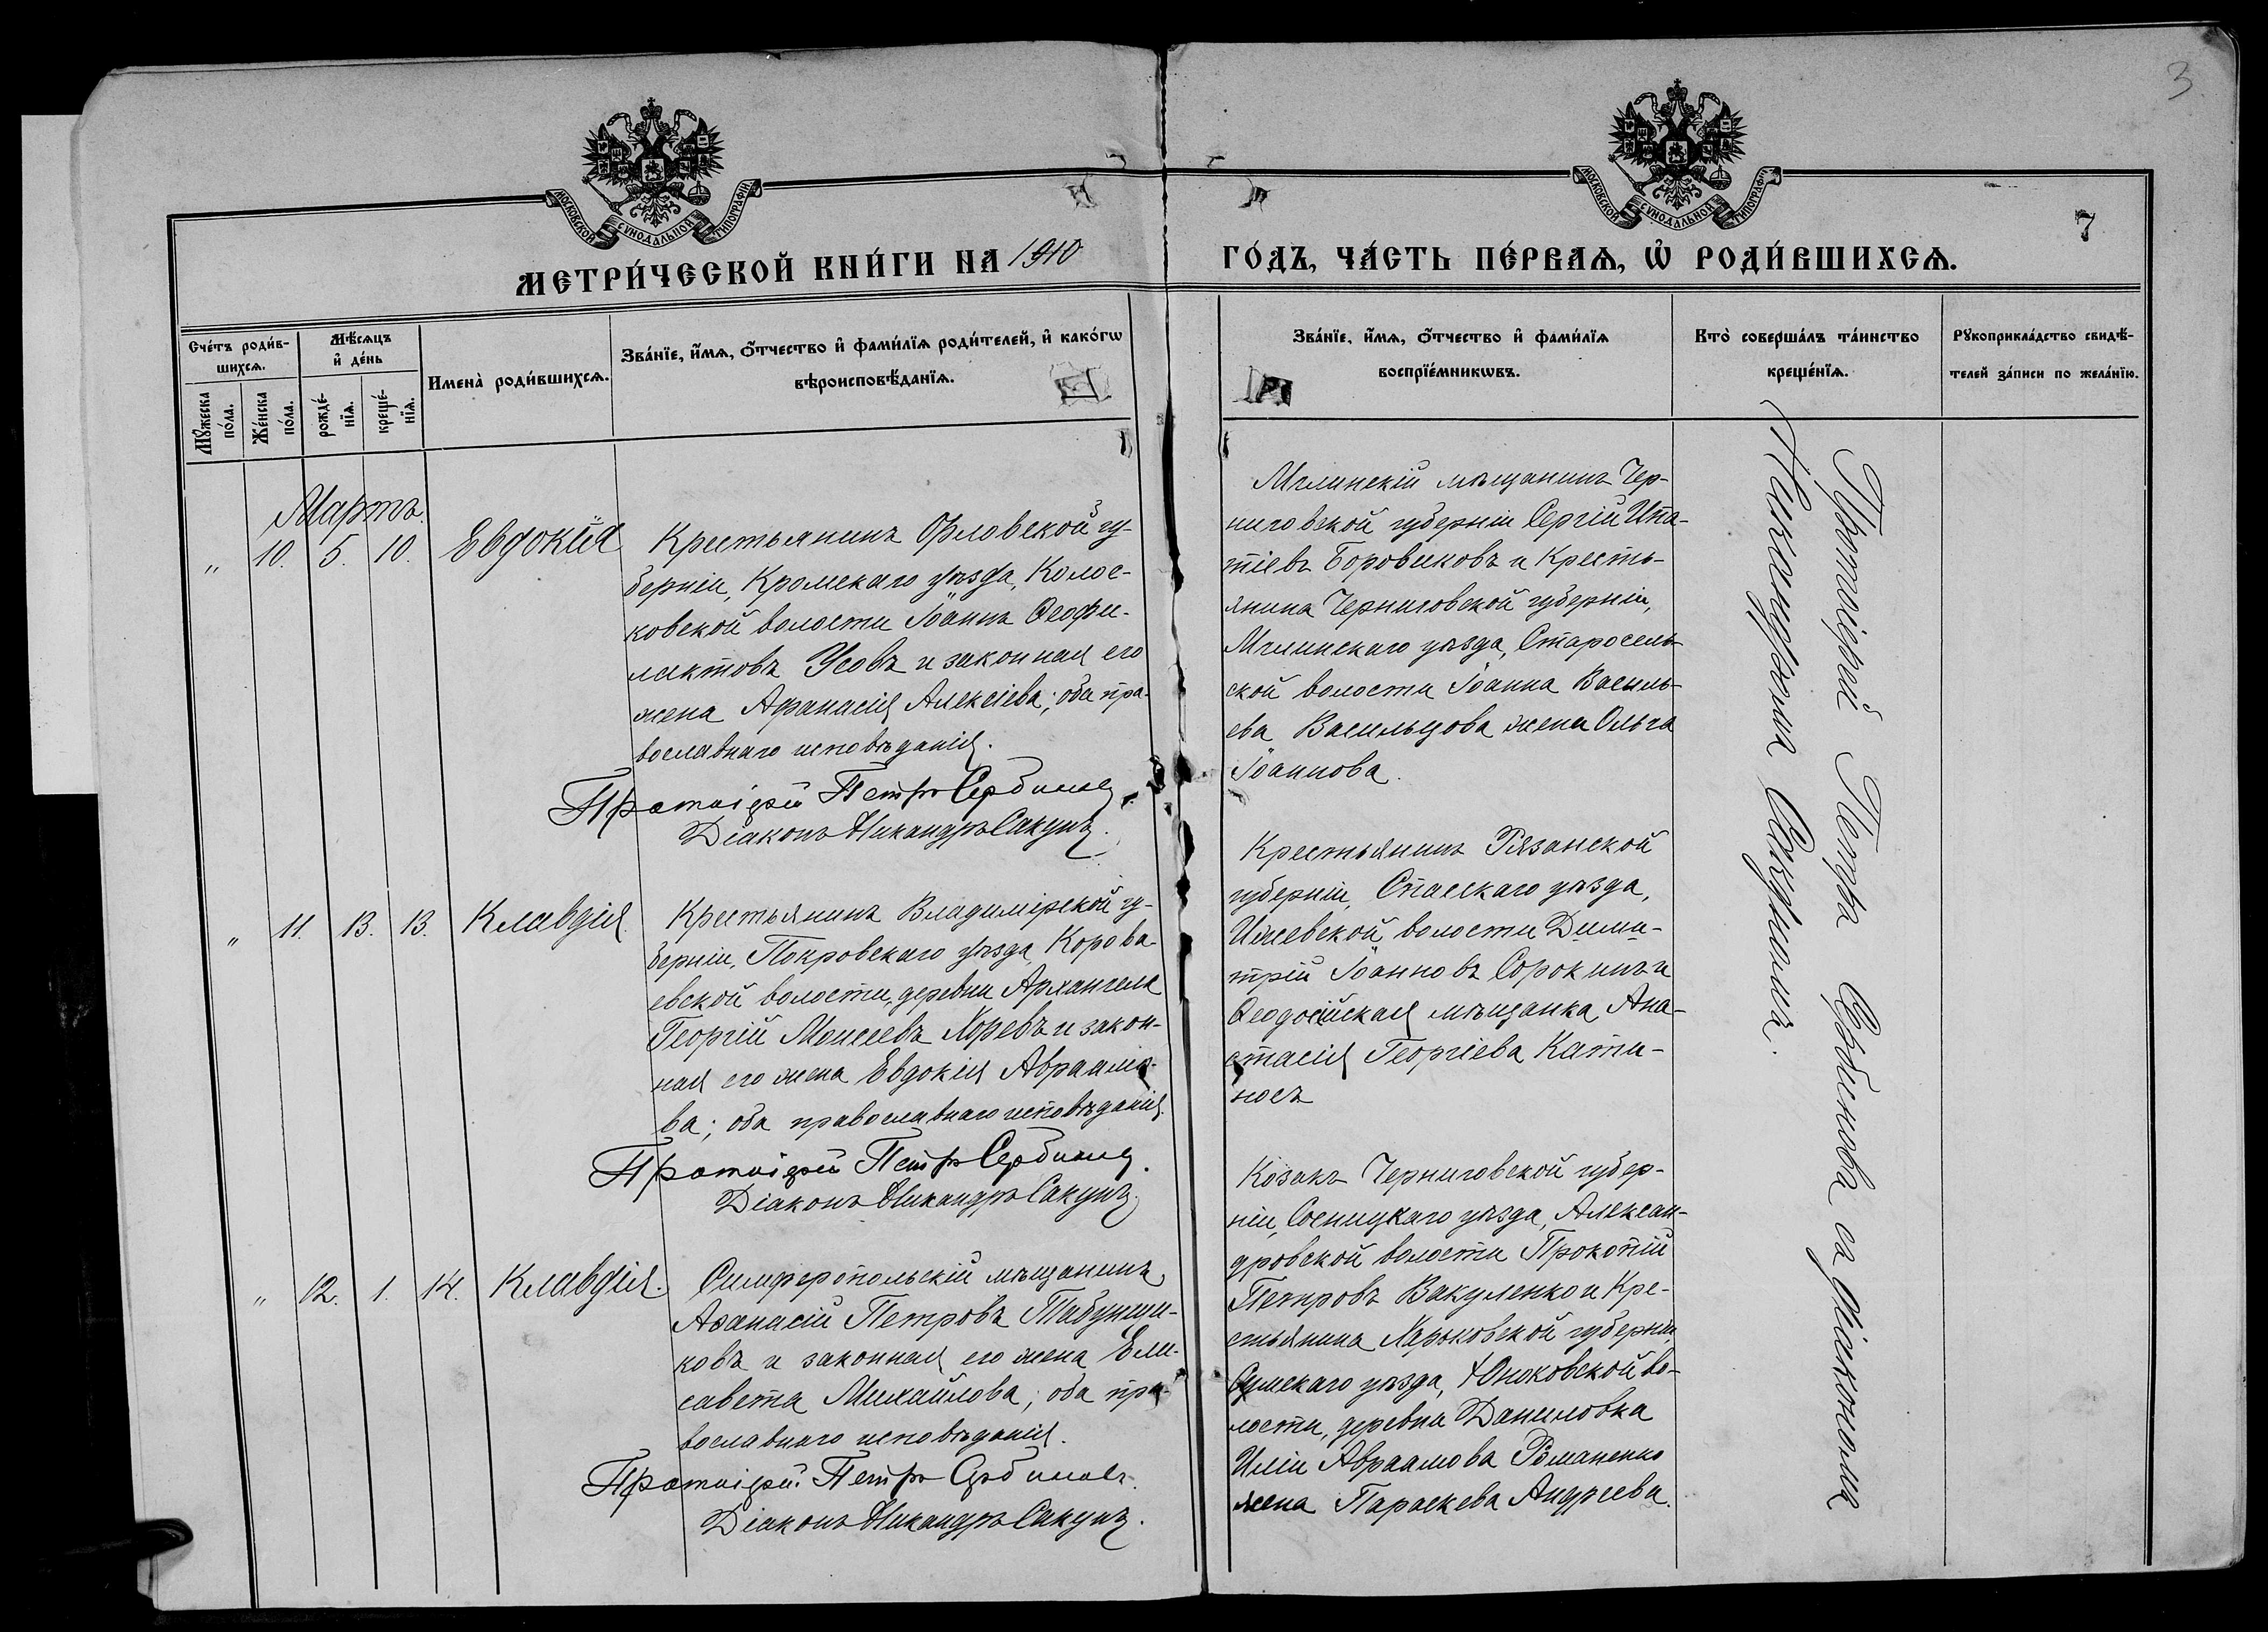 3
7
МОСКОВСКОЙ СѴНОДАЛЬНОЙ ТИПОГРАФІИ
МОСКОВСКОЙ СѴНОДАЛЬНОЙ ТИПОГРАФІИ
МЕТРИ́ЧЕСКОЙ КНИ́ГИ НА 1910
ГО́ДЪ, ЧА́СТЬ ПЕ́РВАѦ, Ѡ҆ РОДИ́ВШИХСѦ.
Сче́тъ роди́в-
шихсѧ.
Мꙋ́жеска
по́ла.
Же́нска
по́ла.
Мѣ́сѧцъ
и҆ де́нь
рожде́-
нїѧ.
креще́-
нїѧ.
Имена̀ роди́вшихсѧ.
Зва́нїе, и҆́мѧ, ѻ҆́тчество и҆ фами́лїѧ роди́телей, и҆ како́гѡ
вѣроисповѣ́данїѧ.
Зва́нїе, и҆́мѧ, ѻ҆́тчество и҆ фами́лїѧ
воспрїе́мникѡвъ.
Кто̀ соверша́лъ та́инство
креще́нїѧ.
Рꙋкоприкла́дство свидѣ́-
телей за́писи по жела́нїю.
Мартъ.
" 10. 5. 10. Евдокія
Крестьянинъ Орловской гу-
берніи, Кромскаго уѣзда, Колос-
ковской волости Іоаннъ Ѳеофи-
лактовъ Усовъ и законная его
жена Афанасія Алексіева; оба пра-
вославнаго исповѣданія.
Протоіерей Петръ Сербиновъ.
Діаконъ Никандръ Сакунъ.
Мглинскій мѣщанинъ Чер-
ниговской губерніи Сергій Ипа-
тіевъ Боровиковъ и Кресть-
янина Черниговской губерніи,
Мглинскаго уѣзда, Старосель-
ской волости Іоанна Василь-
ева Васильцова жена Ольга
Іоаннова.
" 11. 13. 13. Клавдія.
Крестьянинъ Владимірской гу-
берніи, Покровскаго уѣзда, Корова-
евской волости, деревни Архангела
Георгій Моисеевъ Хоревъ и закон-
ная его жена Евдокія Авраамо-
ва; оба православнаго исповѣданія.
Протоіерей Петръ Сербиновъ.
Діаконъ Никандръ Сакунъ.
Крестьянинъ Рязанской
губерніи, Спасскаго уѣзда,
Ижевской волости Дими-
трій Іоанновъ Сорокинъ и
Ѳеодосійская мѣщанка Ана-
стасія Георгіева Кати-
носъ
" 12. 1. 14. Клавдія.
Симферопольскій мѣщанинъ
Аѳанасій Петровъ Табунщи-
ковъ и законная его жена Ели-
савета Михайлова; оба пра-
вославнаго исповѣданія.
Протоіерей Петръ Сербиновъ.
Діаконъ Никандръ Сакунъ.
Козакъ Черниговской губер-
ніи, Сосницкаго уѣзда, Алексан-
дровской волости Прокопій
Петровъ Вакуленко и Кре-
стьянина Харьковской губерніи,
Сумскаго уѣзда, Юнаковской во-
лости, деревни Даниловка
Иліи Авраамова Романенко
жена Параскева Андреева.
Протоіерей Петръ Сербиновъ съ діакономъ
Никандромъ Сакуномъ.